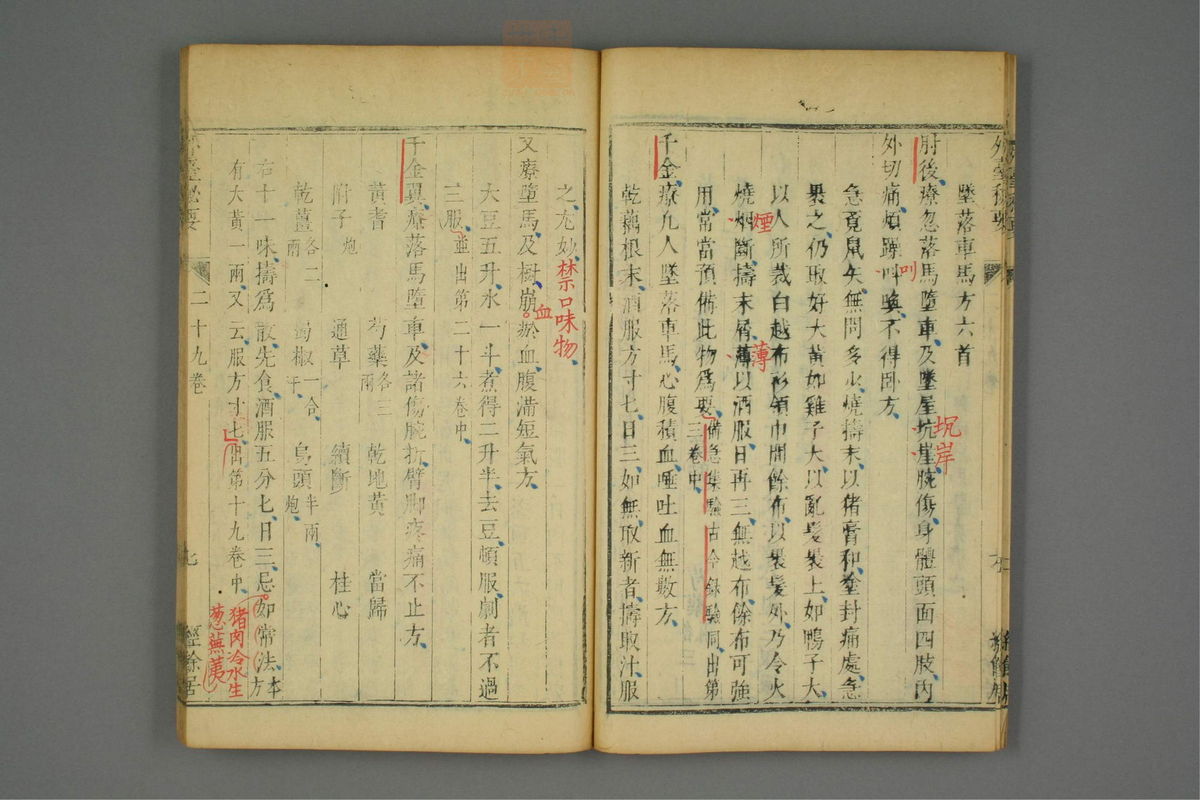 墜落車馬方六首
肘後療忽落馬墮車及墜屋坑崖腕傷身體頭面四肢內
坑岸
外切痛煩躁叫喚不得卧方
叫
急覓鼠矢無問多少燒擣末以猪膏和塗封痛處急
裹之仍取好大黃如雞子大以亂髮裹上如鴨子大
以人所裁白越布衫領巾間餘布以裹髮外乃令火
煙
燒烟斷擣末屑薄以酒服日再三無越布餘布可強
薄
用常當預備此物爲要備急集驗古今錄驗同出第
三卷中
千金療凡人墜落車馬心腹積血唾吐血無數方
乾藕根末酒服方寸匕日三如無取新者擣取汁服
之尤妙
禁口味物
又療墮馬及樹崩瘀血腹滿短氣方
血
大豆五升水一斗煮得二升半去豆頓服劇者不過
三服並出第二十六卷中
千金翼療落馬墮車及諸傷腕折臂脚疼痛不止方
黃耆 芍藥各三兩 乾地黃 當歸
附子炮 通草 續斷 桂心
乾薑各二兩 蜀椒一合半 烏頭半兩炮
右十一味擣爲散先食酒服五分匕日三忌如常法本方
有大黃一兩又云服方寸匕出第十九卷中
猪肉冷水生
葱蕪荑
二十九卷
經餘居